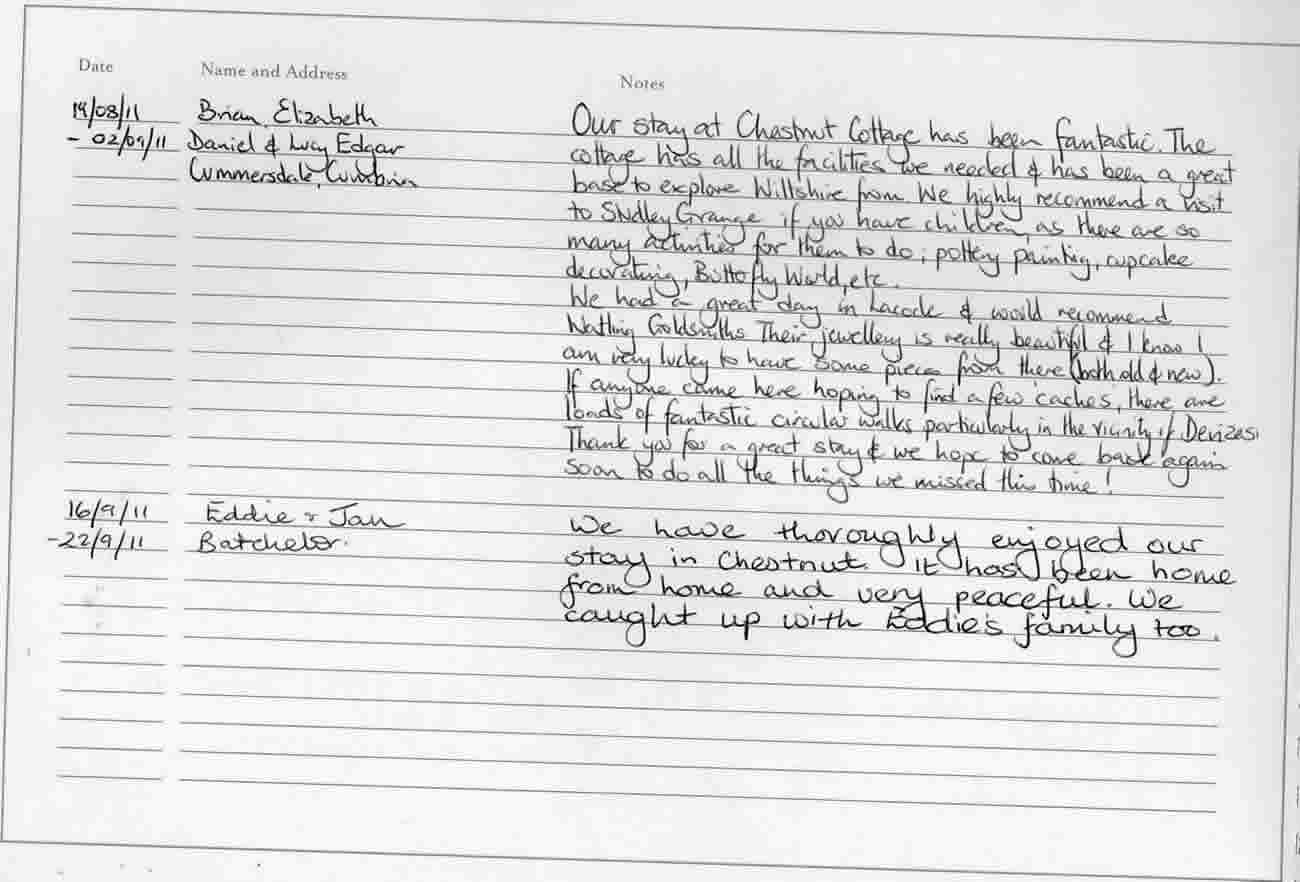 Date Name and Address Notes
19/08/11 Brian, Elizabeth Our stay at Chestnut Cottage has been fantastic. The
- 02/09/11 Daniel & Lucy Edgar cottage has all the facilities we needed & has been a great
Cummersdale, Cumbria base to explore Wiltshire from. We highly recommend a visit
to Studley Grange if you have children, as there are so
many activities for them to do; pottery painting, cupcake
decorating, Butterfly World, etc.
We had a great day in Lacock & would recommend
Watling Goldsmiths. Their jewellery is really beautiful & I know I
am very lucky to have some pieces from there (both old & new).
If anyone came here hoping to find a few 'caches', there are
loads of fantastic circular walks particularly in the vicinity of Devizes.
Thank you for a great stay & we hope to come back again
soon to do all the things we missed this time!
16/9/11 Eddie & Jan We have thoroughly enjoyed our
-22/9/11 Batchelor. stay in Chestnut. It has been home
from home and very peaceful. We
caught up with Eddie's family too.